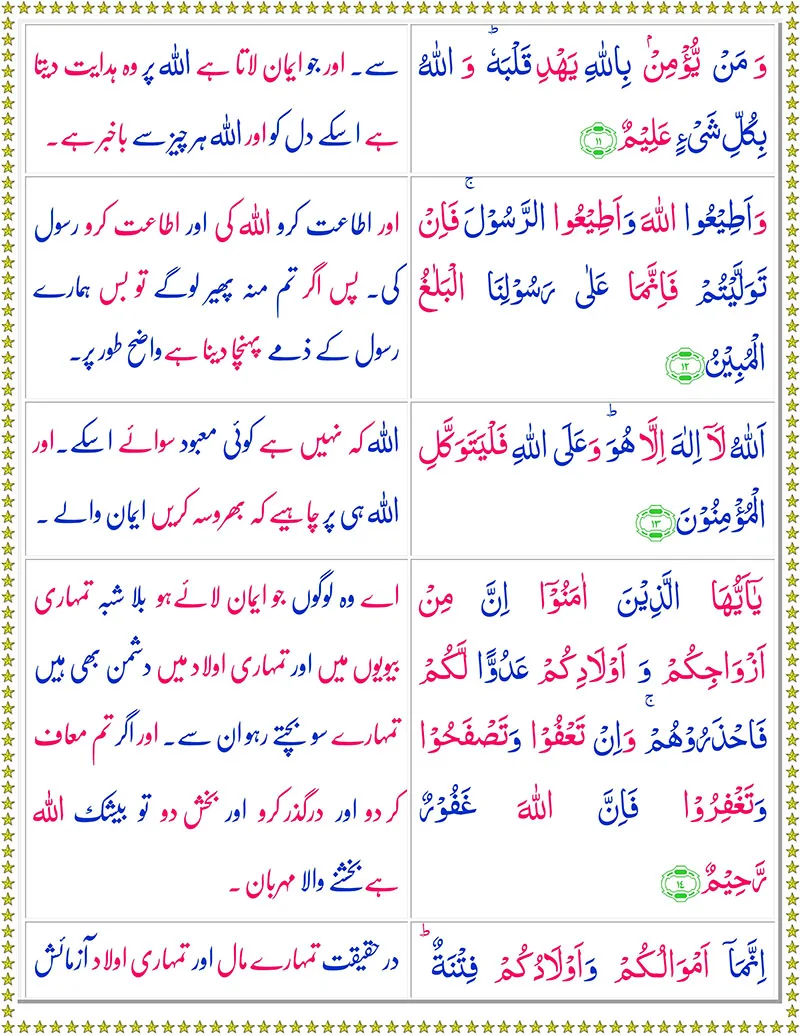 وَ مَنْ يُّؤْمِنْۢ بِاللّٰهِ يَهْدِ قَلْبَهٗ ؕ وَ اللّٰهُ
بِكُلِّ شَیْءٍ عَلِیْمٌ ۝۱۱
سے۔ اور جو ایمان لاتا ہے اللہ پر وہ ہدایت دیتا
ہے اسکے دل کو اور اللہ ہر چیز سے باخبر ہے۔
وَاَطِیْعُوا اللّٰهَ وَاَطِیْعُوا الرَّسُوْلَ ۚ فَاِنْ
تَوَلَّیْتُمْ فَاِنَّمَا عَلٰی رَسُوْلِنَا الْبَلٰغُ
الْمُبِیْنُ ۝۱۲
اور اطاعت کرو اللہ کی اور اطاعت کرو رسول
کی۔ پس اگر تم منہ پھیر لوگے تو بس ہمارے
رسول کے ذمے پہنچا دینا ہے واضح طور پر۔
اَللّٰهُ لَاۤ اِلٰهَ اِلَّا هُوَ ؕ وَعَلَی اللّٰهِ فَلْیَتَوَكَّلِ
الْمُؤْمِنُوْنَ ۝۱۳
اللہ کہ نہیں ہے کوئی معبود سوائے اسکے۔ اور
اللہ ہی پر چاہیے کہ بھروسہ کریں ایمان والے ۔
یٰۤاَیُّهَا الَّذِیْنَ اٰمَنُوْۤا اِنَّ مِنْ
اَزْوَاجِكُمْ وَ اَوْلَادِكُمْ عَدُوًّا لَّكُمْ
فَاحْذَرُوْهُمْ ۚ وَاِنْ تَعْفُوْا وَتَصْفَحُوْا
وَتَغْفِرُوْا فَاِنَّ اللّٰهَ غَفُوْرٌ
رَّحِیْمٌ ۝۱۴
اے وہ لوگوں جو ایمان لائے ہو بلا شبہ تمہاری
بیویوں میں اور تمہاری اولاد میں دشمن بھی ہیں
تمہارے سو بچتے رہو ان سے۔ اور اگر تم معاف
کر دو اور درگذر کرو اور بخش دو تو بیشک اللہ
ہے بخشنے والا مہربان ۔
اِنَّمَاۤ اَمْوَالُكُمْ وَاَوْلَادُكُمْ فِتْنَةٌ ؕ
درحقیقت تمہارے مال اور تمہاری اولاد آزمائش